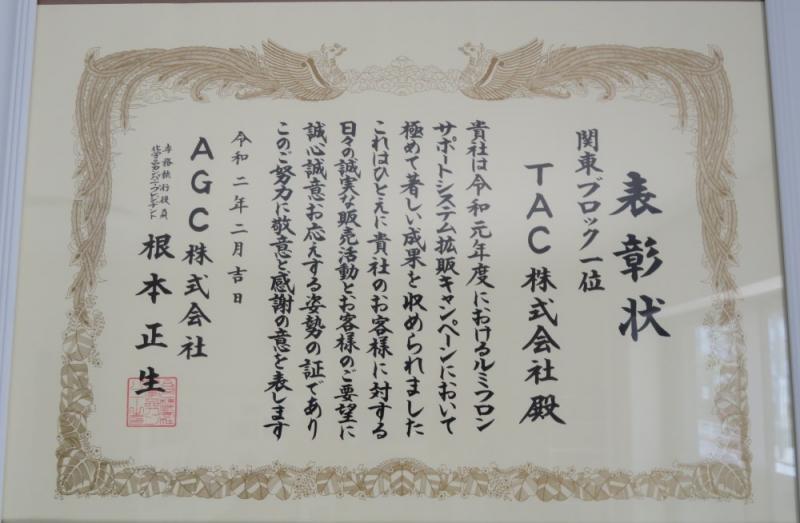 表彰状
関東ブロック一位
TAC株式会社殿
貴社は令和元年度におけるルミフロン
サポートシステム拡販キャンペーンにおいて
極めて著しい成果を収められました
これはひとえに貴社のお客様に対する
日々の誠実な販売活動とお客様のご要望に
誠心誠意お応えする姿勢の証であり
このご努力に敬意と感謝の意を表します
令和二年二月吉日
AGC株式会社
専務執行役員
化学品カンパニープレジデント
根本正生